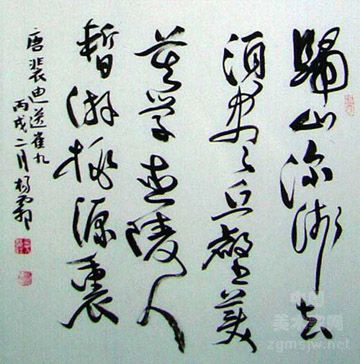 歸山深浅去
須尽丘壑美
莫学武陵人
暫游桃源裏
唐裴迪送崔九
丙戌二月杨
zgmsjw.net